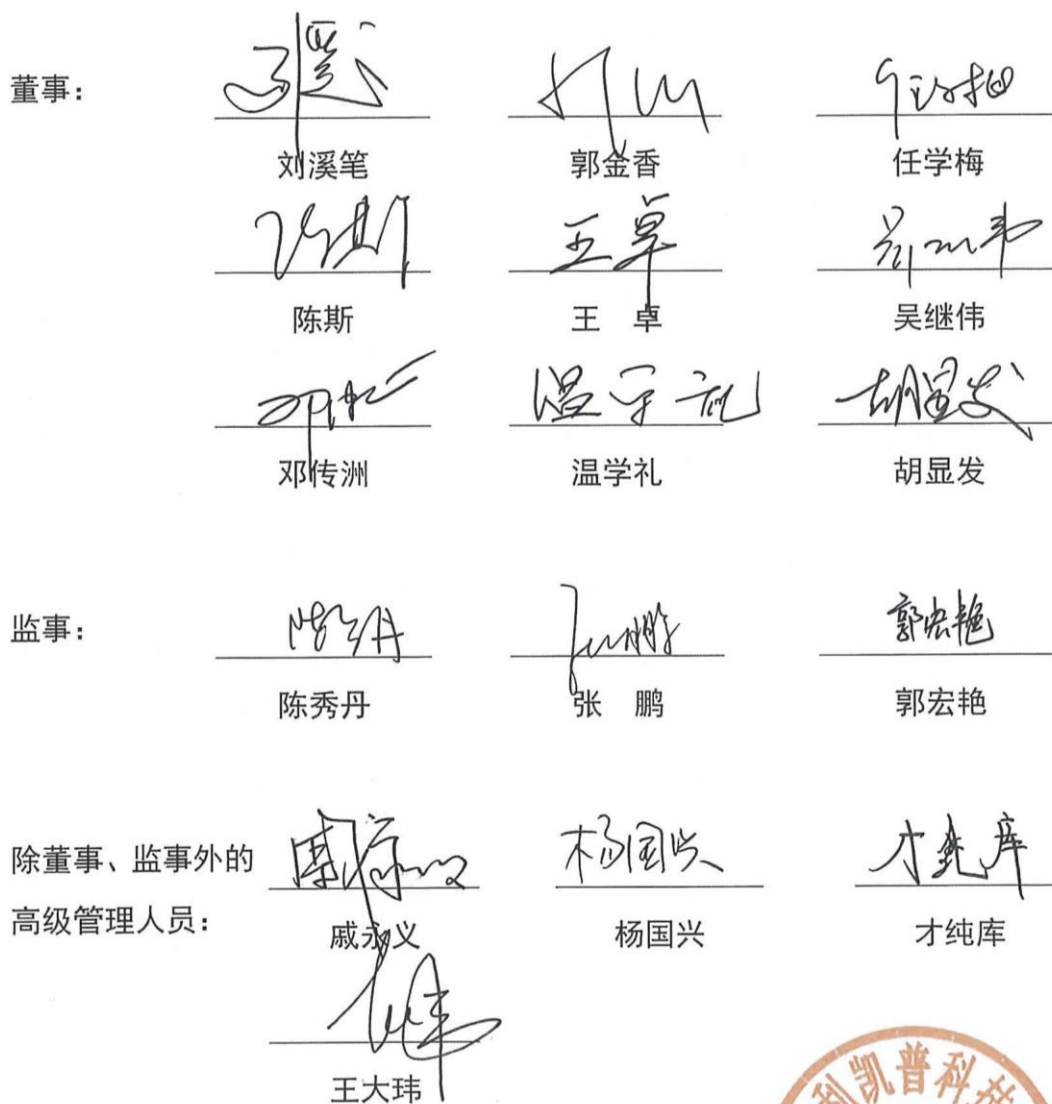 董事：
刘溪笔 郭金香 任学梅
陈斯 王 卓 吴继伟
邓传洲 温学礼 胡显发
监事：
陈秀丹 张 鹏 郭宏艳
除董事、监事外的
高级管理人员：
戚永义 杨国兴 才纯库
王大玮
利凯普科技